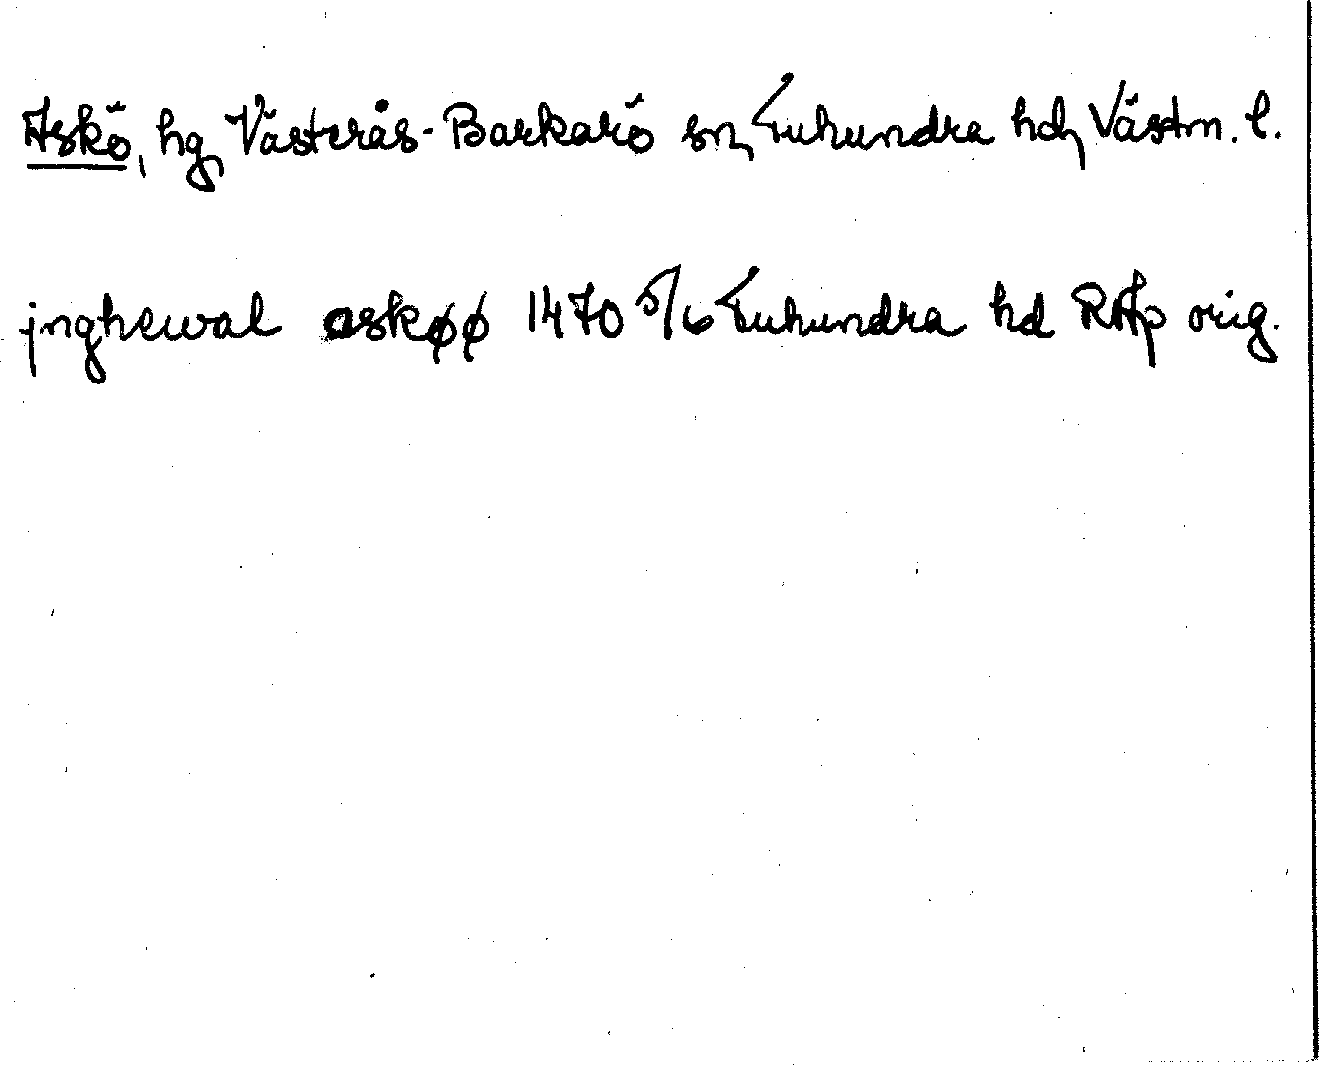 Askö, hg, Västerås-Barkarö sn, Tuhundra hd, Västm. l.
jngheual askøø 1470 5/6 Tuhundra hd RAp orig.